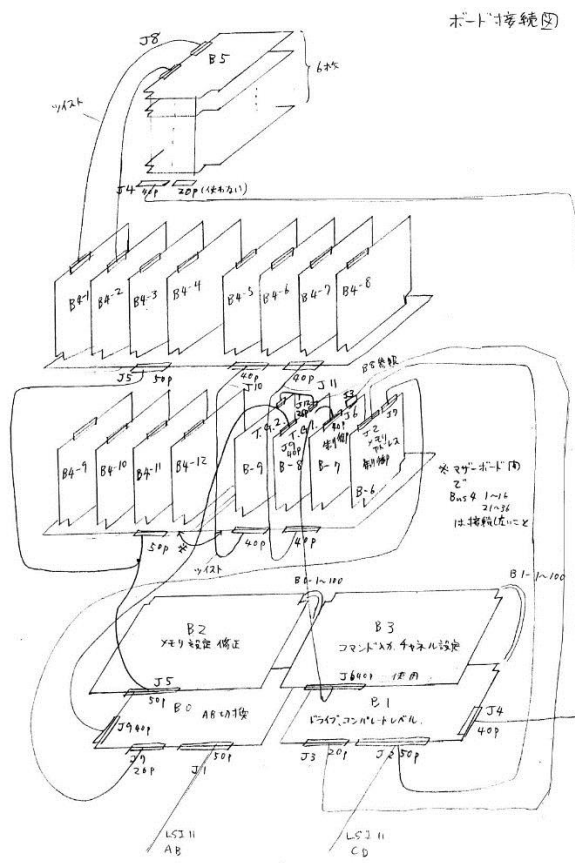 ボード接続図
J8
B5
6枚
ツイスト
J4
40p
20p(使わない)
B4-1
B4-2
B4-3
B4-4
B4-5
B4-6
B4-7
B4-8
J5
50p
40p
J10
40p
J11
B5参照
B4-9
B4-10
B4-11
B4-12
B-9
B-8
B-7
B-6
T.G.2
T.G.1
J9
40p
J6
40p
制御
J3
J2
メモリ
アドレス
制御
J7
※マザーボード間
で
Bus4 1~16
21~36
は接続しないこと
50p
※
40p
40p
ツイスト
B0-1~100
B1-1~100
B2
メモリ設定 修正
B3
コマンド入力.チャネル設定
J5
50p
J6 40p 使用
B0
AB切換
B1
ドライブ、コンパレートレベル.
J9 40p
J7
26p
J1
50p
J3
20p
J2
50p
J4
40p
LSI 11
AB
LSI 11
CD